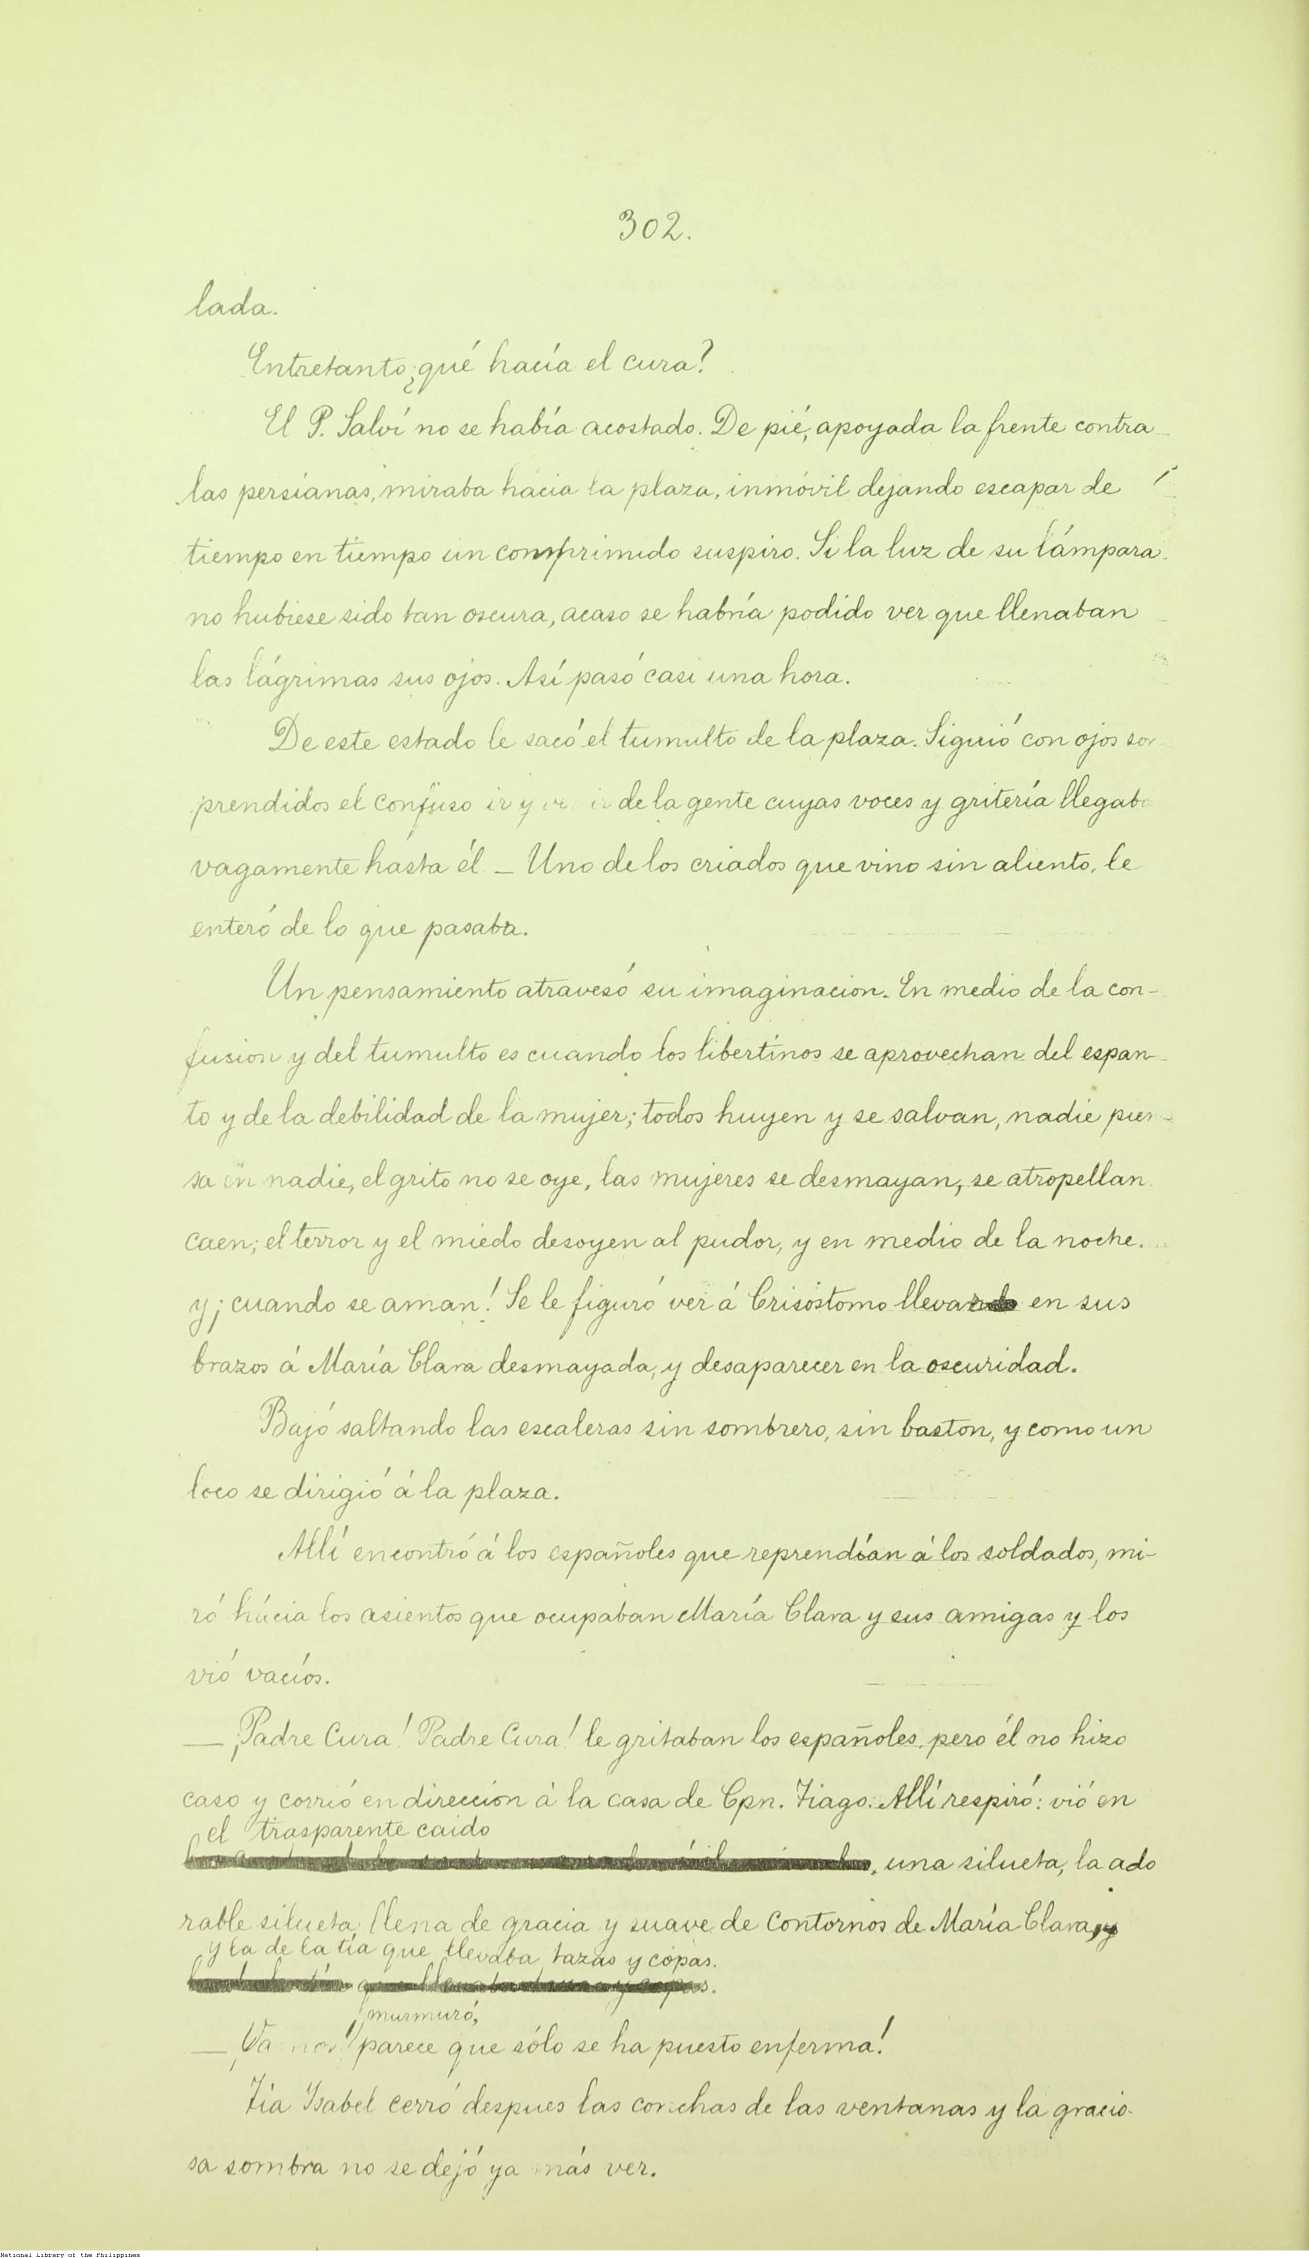 302.
lada.
Entretanto ¿qué hacía el cura?
El P. Salví no se había acostado. De pié, apoyada la frente contra
las persianas, miraba hácia la plaza, inmóvil dejando escapar de
tiempo en tiempo un comprimido suspiro. Si la luz de su lámpara
no hubiese sido tan oscura, acaso se habría podido ver que llenaban
las lágrimas sus ojos. Así pasó casi una hora.
De este estado le sacó el tumulto de la plaza. Siguió con ojos sor
prendidos el confuso ir y de la gente cuyas voces y gritería llegaba
vagamente hasta él — Uno de los criados que vino sin aliento, le
enteró de lo que pasaba.
Un pensamiento atravesó su imaginacion. En medio de la con-
fusion y del tumulto es cuando los libertinos se aprovechan del espan-
to y de la debilidad de la mujer; todos huyen y se salvan, nadie pien-
sa en nadie, el grito no se oye, las mujeres se desmayan, se atropellan
caen; el terror y el miedo desoyen al pudor, y en medio de la noche..
y ¡cuando se aman! Se le figuró ver á Crisóstomo llevando en sus
brazos á María Clara desmayada, y desaparecer en la oscuridad.
Bajó saltando las escaleras sin sombrero, sin baston, y como un
loco se dirigió á la plaza.
Allí encontró á los españoles que reprendían á los soldados, mi-
ró hácia los asientos que ocupaban María Clara y sus amigas y los
vió vacíos.
— ¡Padre Cura! Padre Cura! le gritaban los españoles, pero él no hizo
caso y corrió en dirección á la casa de Cpn. Tiago. Allí respiró: vió en
el trasparente caido
, una silueta, la ado
rable silueta, llena de gracia y suave de contornos de María Clara, y
y la de la tía que llevaba tazas y copas.
murmuró,
— ¡Vamos! parece que sólo se ha puesto enferma!
Tia Isabel cerró despues las conchas de las ventanas y la gracio-
sa sombra no se dejó ya más ver.
National Library of the Philippines